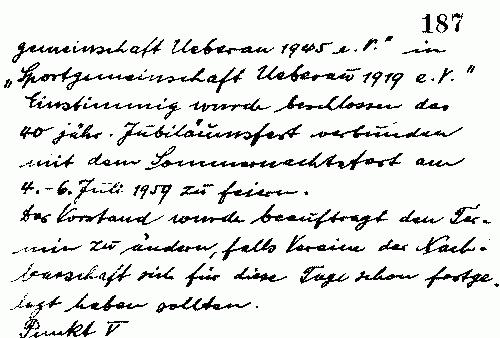 187
gemeinschaft Ueberau 1945 e.V." in
"Sportgemeinschaft Ueberau 1919 e.V."
Einstimmig wurde beschlossen das
40 jähr. Jubiläumsfest verbunden
mit dem Sommernachtsfest am
4.-6. Juli 1959 zu feiern.
Der Vorstand wurde beauftragt den Ter-
min zu ändern, falls Vereine der Nach-
barschaft sich für diese Tage schon festge-
legt haben sollten.
Punkt V